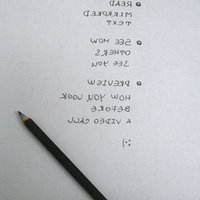 • READ
MIRRORED
TEXT
• SEE HOW
OTHERS
SEE YOU
• PREVIEW
HOW YOU LOOK
BEFORE
A VIDEO CALL
:)